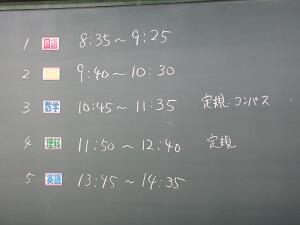 1 国語 8:35～9:25
2 9:40～10:30
3 数学 10:45～11:35 定規・コンパス
4 理科 11:50～12:40 定規
5 英語 13:45～14:35